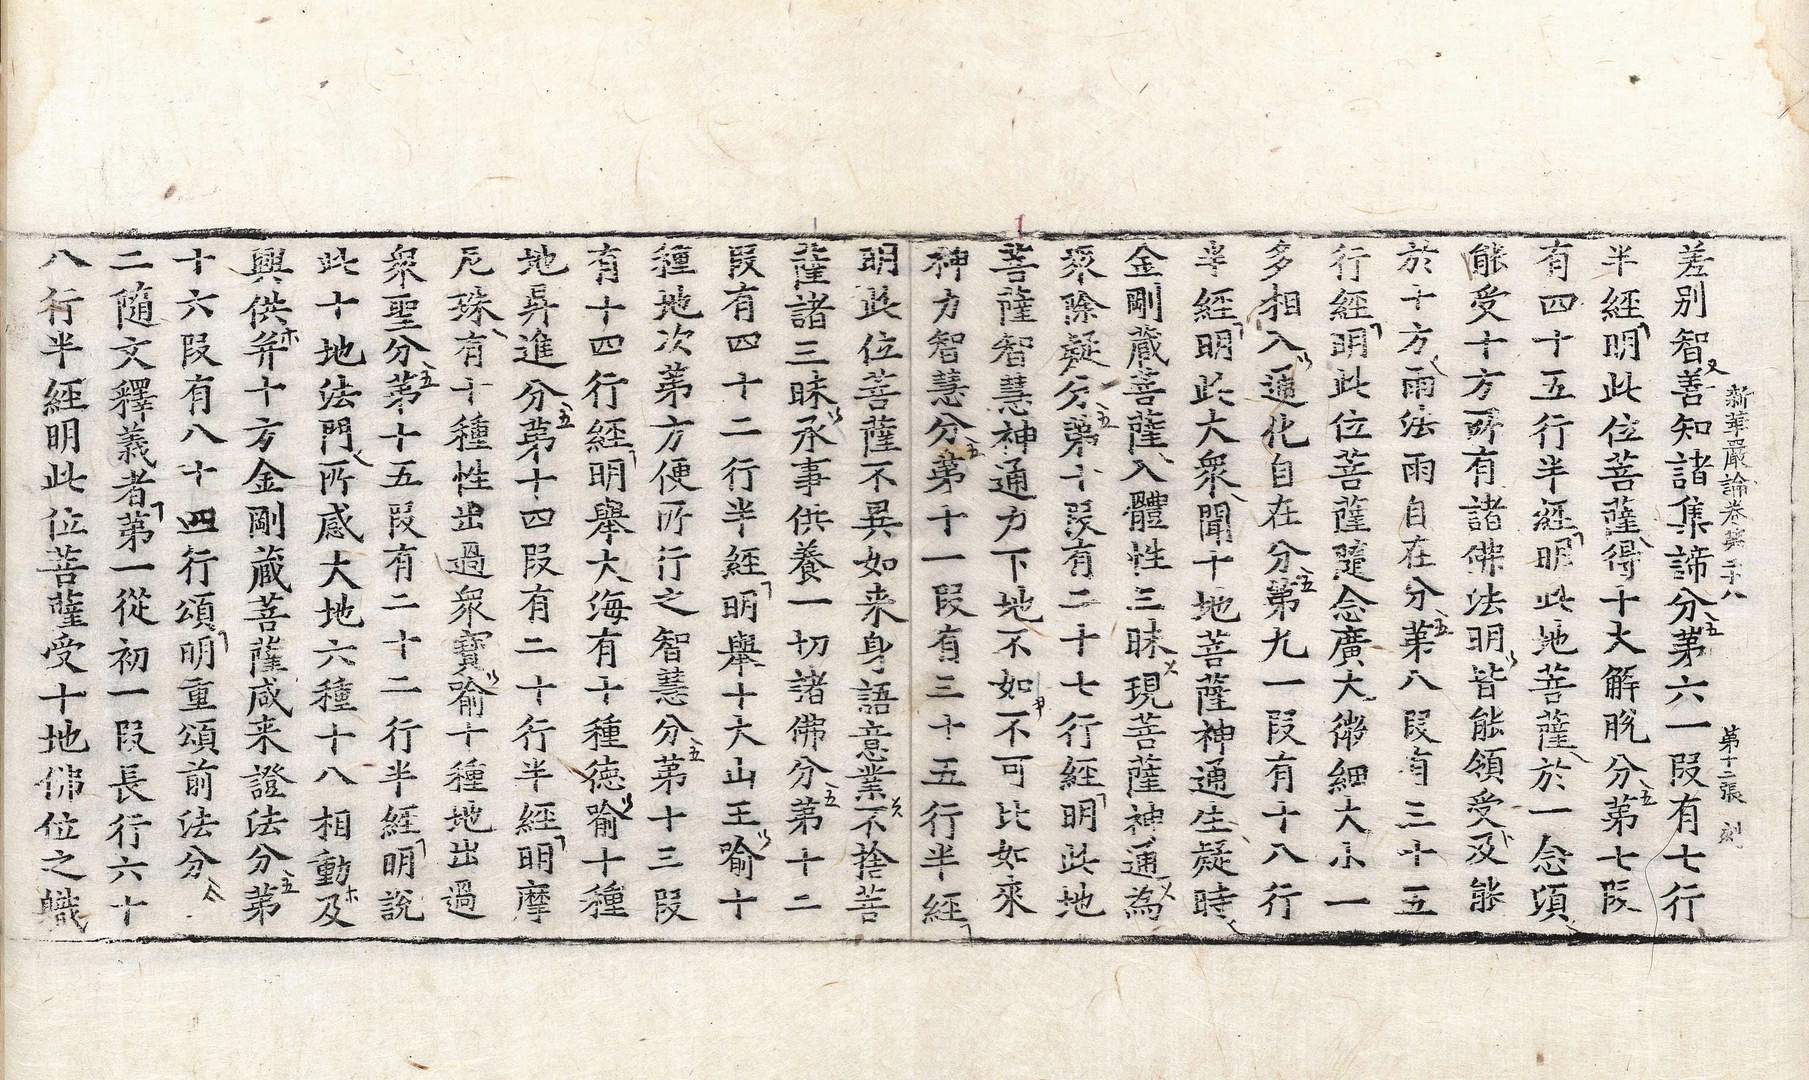 新華嚴論卷第二十八 第十二張 刻
差别智善知諸集諦分第六一段有七行
半經明此位菩薩得十大解脫分第七段
有四十五行半經明此地菩薩於一念頃
能受十方所有諸佛法明皆能領受及能
於十方雨法雨自在分第八段有三十五
行經明此位菩薩隨念廣大微細大小一
多相入通化自在分第九一段有十八行
半經明此大衆聞十地菩薩神通生疑時
金剛藏菩薩入體性三昧現菩薩神通為
衆除疑分第十段有二十七行經明此地
菩薩智慧神通力下地不如不可比如來
神力智慧分第十一段有三十五行半經
明此位菩薩不異如来身語意業不捨菩
薩諸三昧承事供養一切諸佛分第十二
段有四十二行半經明舉十大山王喻十
種地次第方便所行之智慧分第十三段
有十四行經明舉大海有十種德喻十種
地昇進分第十四段有二十行半經明摩
尼珠有十種性出過衆寶喻十種地出過
衆聖分第十五段有二十二行半經明說
此十地法門所感大地六種十八相動及
興供并十方金剛藏菩薩咸来證法分第
十六段有八十四行頌明重頌前法分
二隨文釋義者第一從初一段長行六十
八行半經明此位菩薩受十地佛位之職